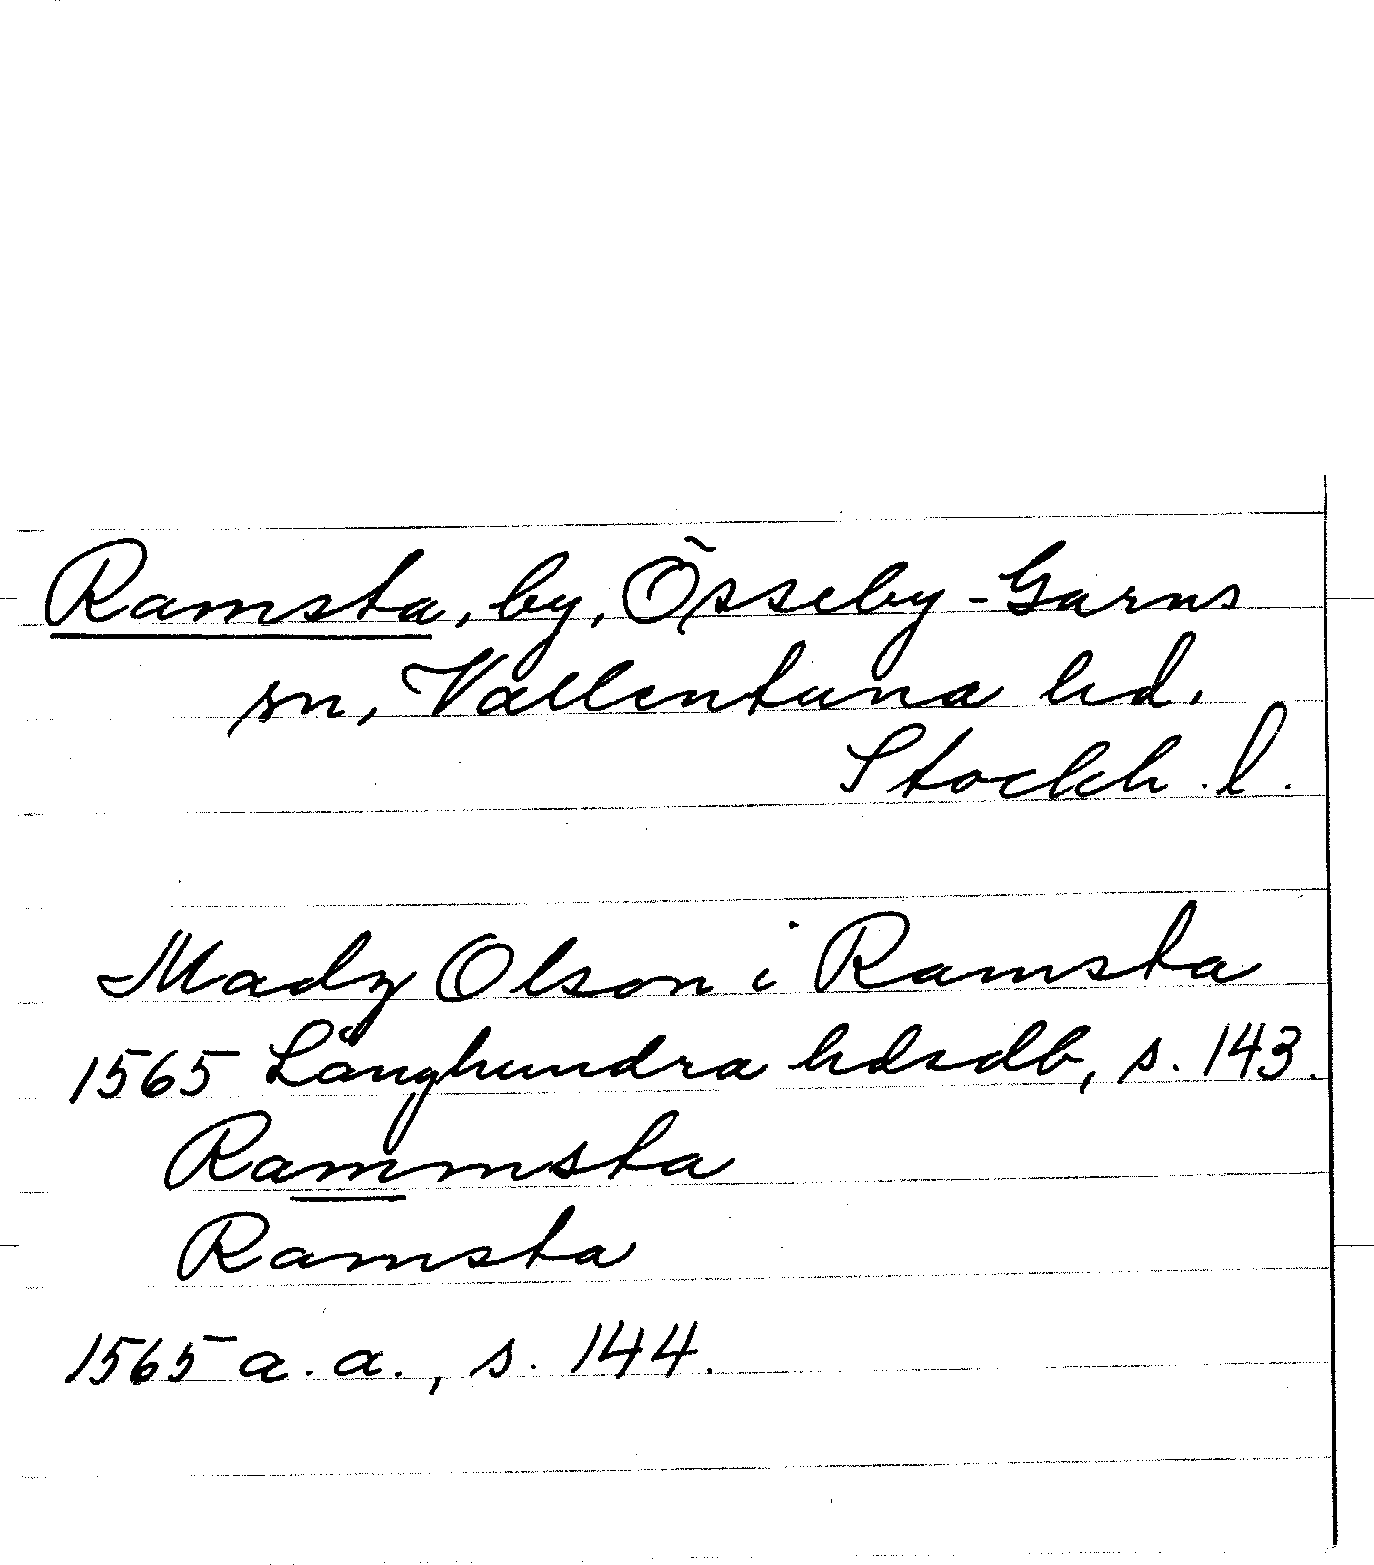 Ramsta, by, Össeby-Garns
sn, Vallentuna hd.
Stockh. l.
Madz Olson i Ramsta
1565 Långhundra hdsdb, s. 143.
Rammsta
Ramsta
1565 a. a., s. 144.